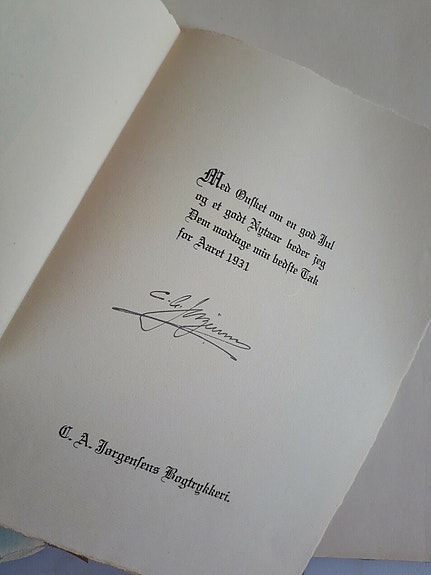 Med Ønsket om en god Jul
og et godt Nytaar beder jeg
Dem modtage min bedste Tak
for Aaret 1931
C. A. Jørgensen
C. A. Jørgensens Bogtrykkeri.